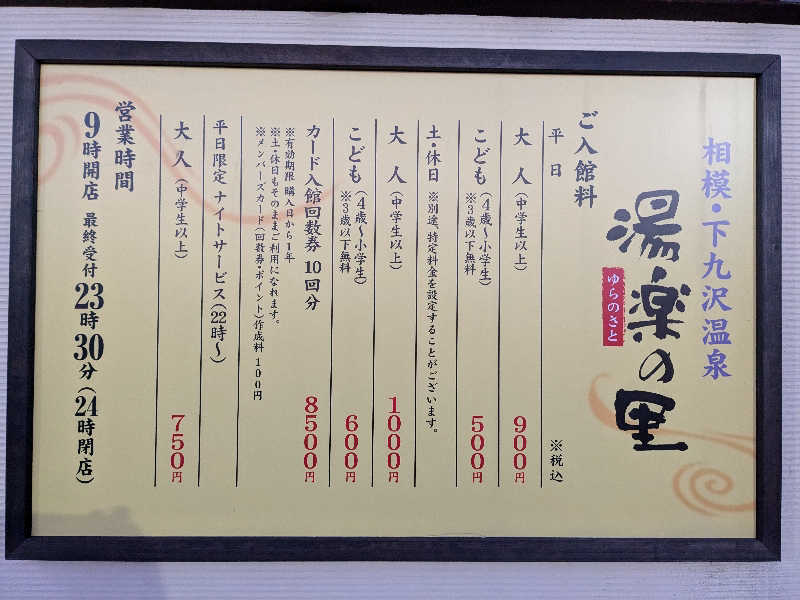 相模・下九沢温泉
湯楽の里
ゆらのさと
ご入館料
平日 ※税込
大人(中学生以上) 900円
こども(4歳〜小学生) 500円
※3歳以下無料
土・休日 ※別途、特定料金を設定することがございます。
大人(中学生以上) 1000円
こども(4歳〜小学生) 600円
※3歳以下無料
カード入館回数券 10回分 8500円
※有効期限 購入日から1年
※土・休日もそのままご利用になれます。
※メンバーズカード(回数券・ポイント)作成料 100円
平日限定 ナイトサービス(22時〜)
大人(中学生以上) 750円
営業時間
9時開店 最終受付23時30分(24時閉店)